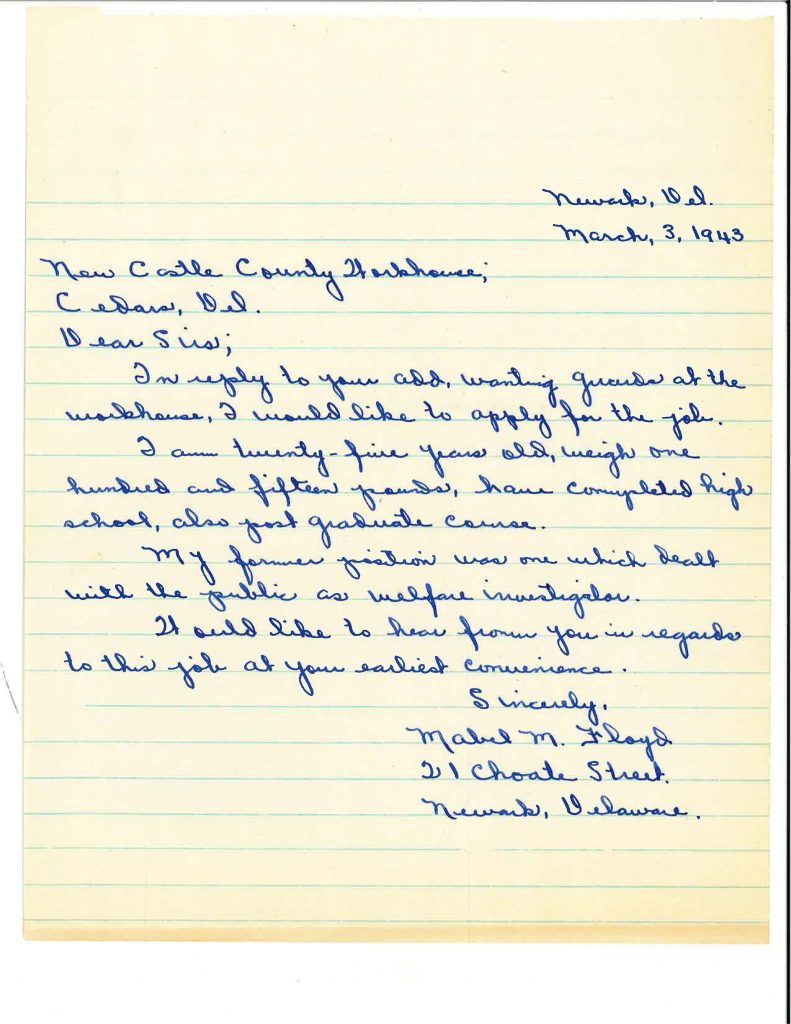 Newark, Del.
March, 3, 1943
New Castle County Workhouse;
Cedars, Del.
Dear Sirs;
In reply to your add, wanting guards at the
workhouse, I would like to apply for the job.
I am twenty-five years old, weigh one
hundred and fifteen pounds, have completed high
school, also post graduate course.
My former position was one which dealt
with the public as welfare investigator.
Would like to hear from you in regards
to this job at your earliest convenience.
Sincerely,
Mabel M. Floyd
21 Choate Street.
Newark, Delaware.